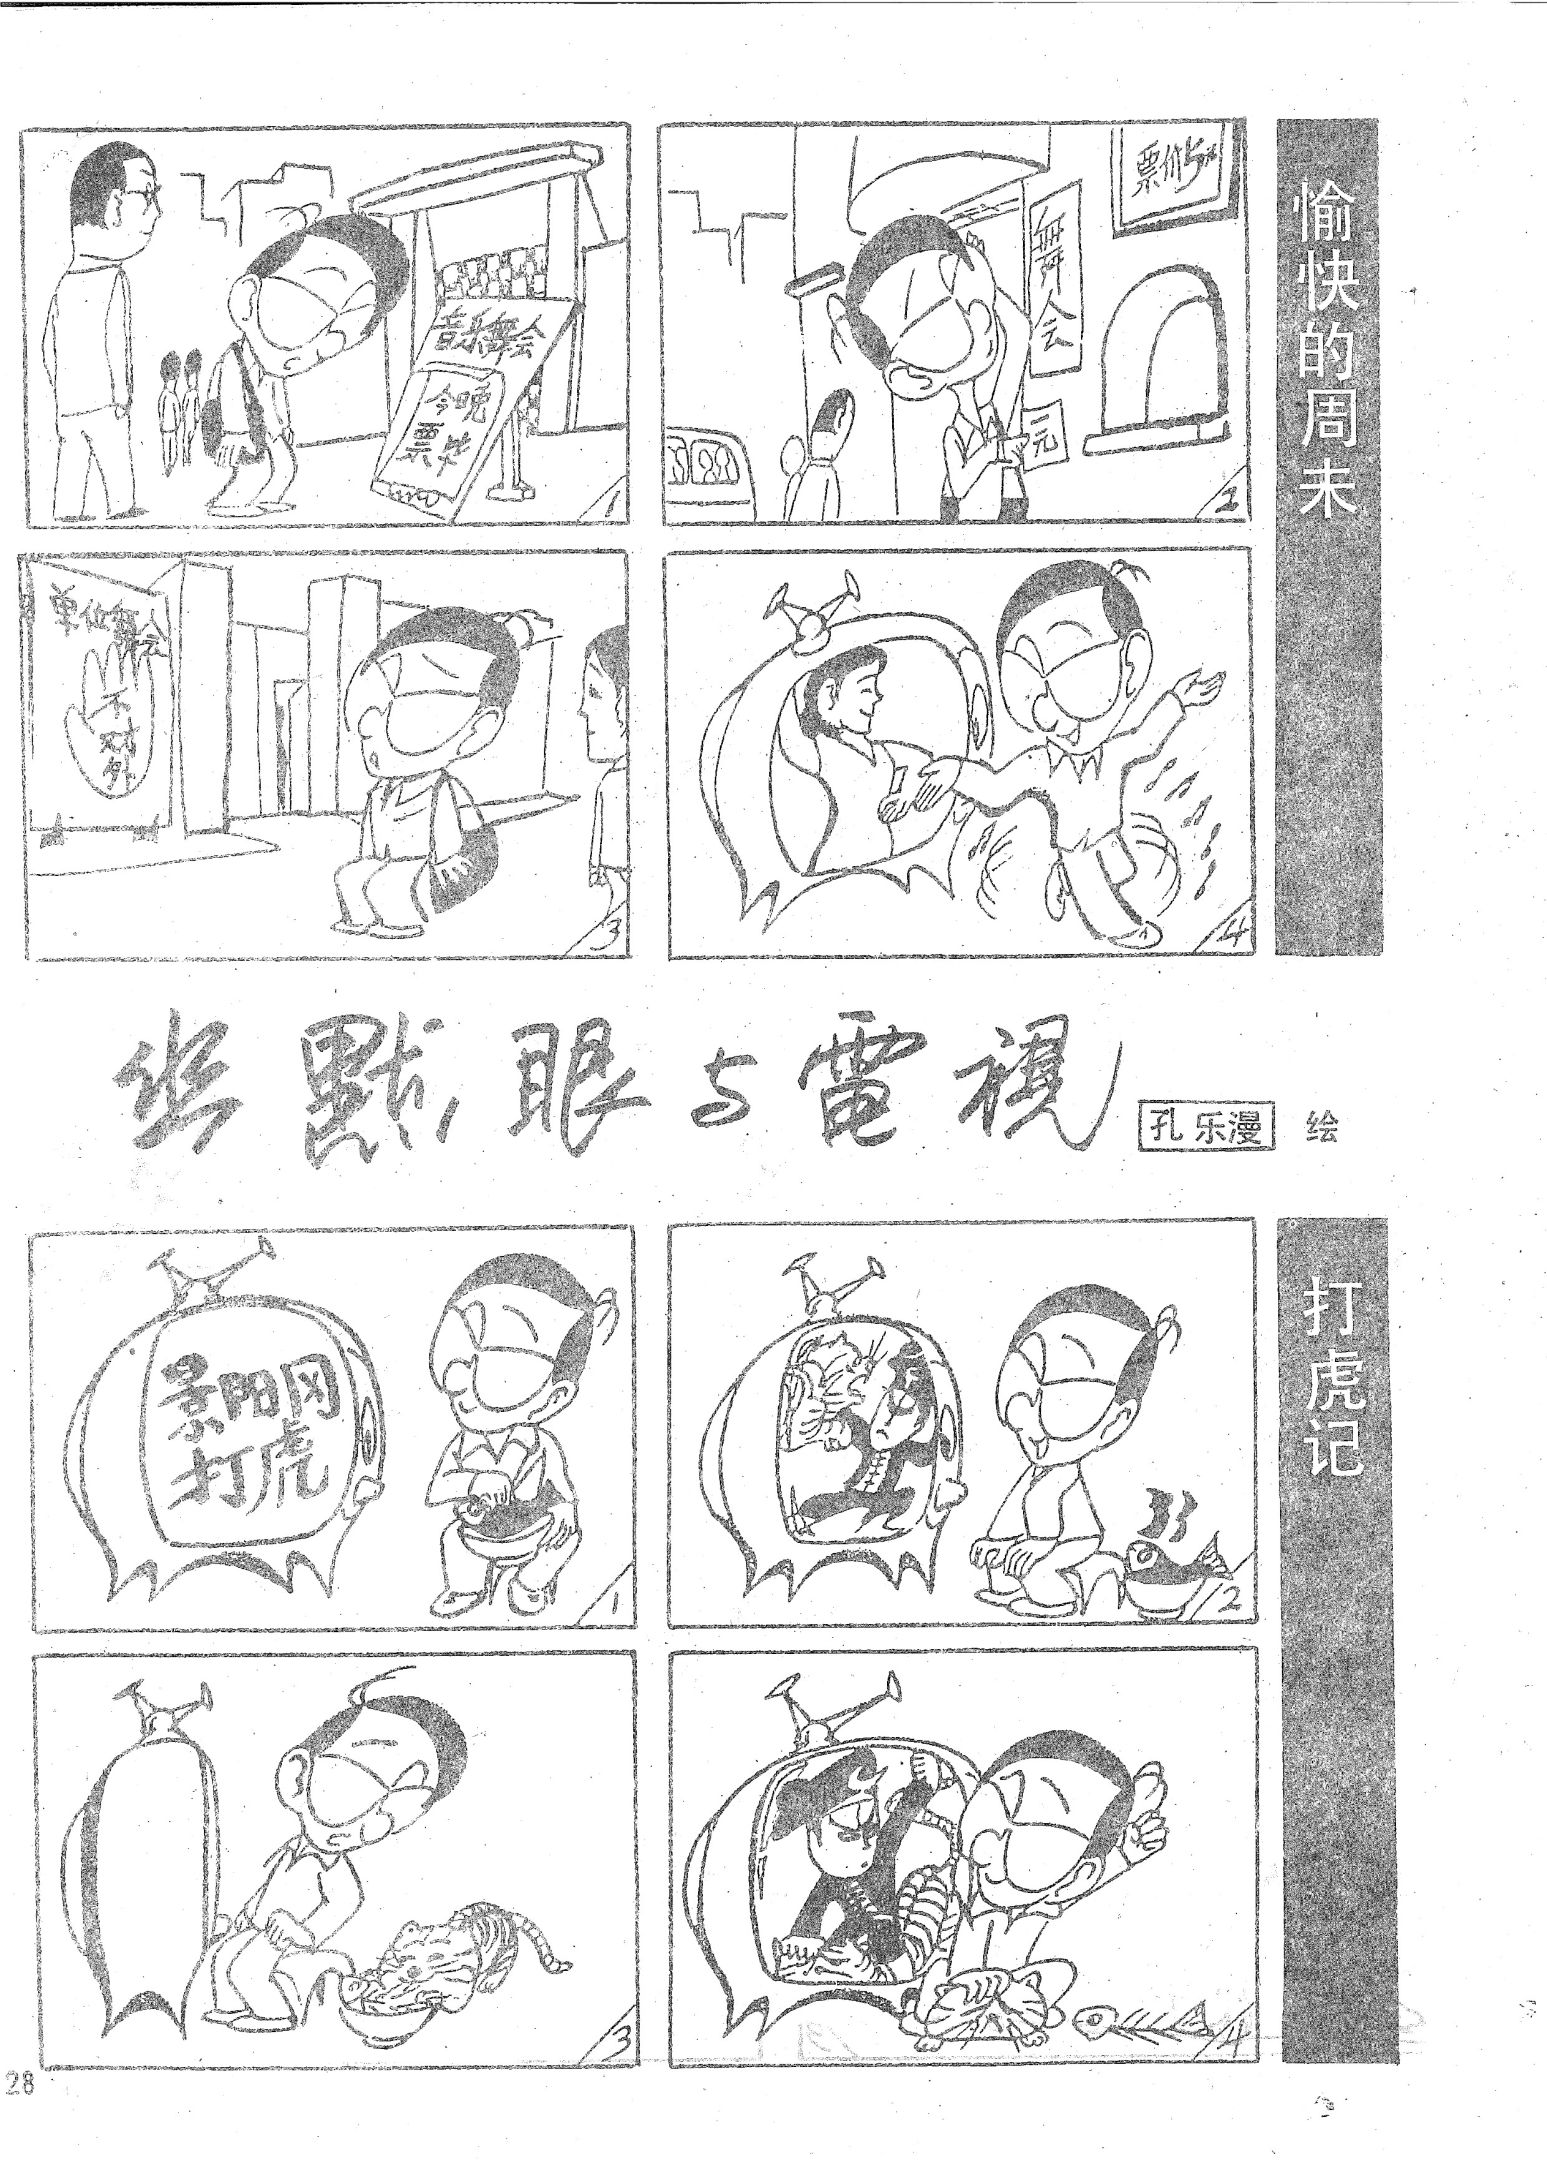 愉快的周末
音乐舞会
今晚
票毕
1
票价5元
舞会
元
2
单位舞会
不对外
3
4
幽默眼与電視
孔乐漫 绘
打虎记
景阳冈
打虎
1
2
3
4
28